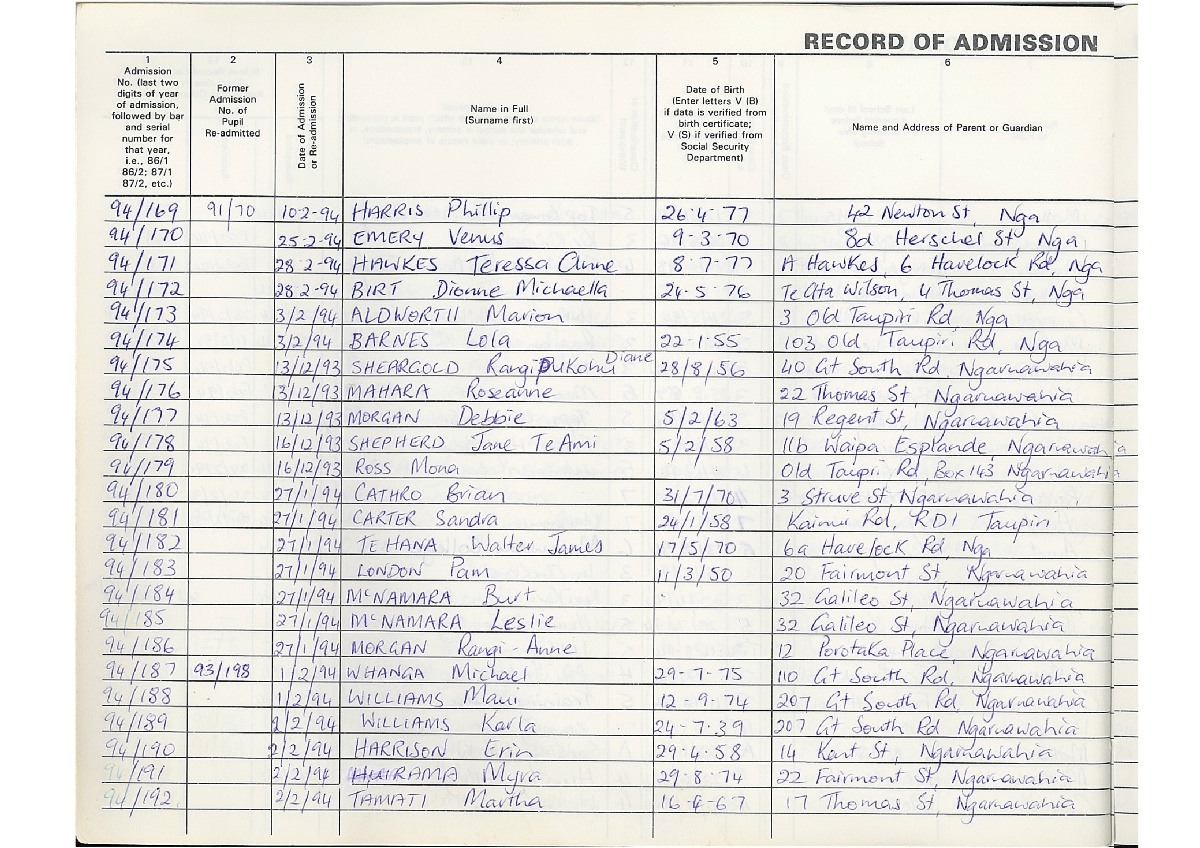 RECORD OF ADMISSION
1 2 3 4 5 6
Admission No. (last two digits of year of admission, followed by bar and serial number for that year, i.e., 86/1 86/2; 87/1 87/2, etc.)
Former Admission No. of Pupil Re-admitted
Date of Admission or Re-admission
Name in Full (Surname first)
Date of Birth (Enter letters V (B) if data is verified from birth certificate; V (S) if verified from Social Security Department)
Name and Address of Parent or Guardian
94/169 91/70 10-2-94 HARRIS Phillip 26·4·77 42 Newton St, Nga
94/170 25-2-94 EMERY Venus 9-3-70 8d Herschel St, Nga
94/171 28-2-94 HAWKES Teressa Anne 8·7-77 A Hawkes, 6 Havelock Rd, Nga
94/172 28-2-94 BIRT Dionne Michaella 24-5-76 Te Ata Wilson, 4 Thomas St, Nga
94/173 3/2/94 ALDWORTH Marion 3 Old Taupiri Rd, Nga
94/174 3/2/94 BARNES Lola 22-1-55 103 Old Taupiri Rd, Nga
94/175 13/12/93 SHEARGOLD Rangipukohu Diane 28/8/56 40 Gt South Rd, Ngaruawahia
94/176 13/12/93 MAHARA Roseanne 22 Thomas St, Ngaruawahia
94/177 13/12/93 MORGAN Debbie 5/2/63 19 Regent St, Ngaruawahia
94/178 16/12/93 SHEPHERD Jane Te Ami 5/2/58 11b Waipa Esplande, Ngaruawahia
94/179 16/12/93 ROSS Mona Old Taupri Rd, Box 143 Ngaruawahia
94/180 27/1/94 CATHRO Brian 31/7/70 3 Struve St, Ngaruawahia
94/181 27/1/94 CARTER Sandra 24/1/58 Kainui Rd, RD1 Taupiri
94/182 27/1/94 TE HANA Walter James 17/5/70 6a Havelock Rd, Nga
94/183 27/1/94 LONDON Pam 11/3/50 20 Fairmont St, Ngaruawahia
94/184 27/1/94 McNAMARA Burt 32 Galileo St, Ngaruawahia
94/185 27/1/94 McNAMARA Leslie 32 Galileo St, Ngaruawahia
94/186 27/1/94 MORGAN Rangi-Anne 12 Porotaka Place, Ngaruawahia
94/187 93/198 1/2/94 WHANGA Michael 29-7-75 110 Gt South Rd, Ngaruawahia
94/188 1/2/94 WILLIAMS Maui 12-9-74 207 Gt South Rd, Ngaruawahia
94/189 2/2/94 WILLIAMS Karla 24-7-39 207 Gt South Rd Ngaruawahia
94/190 2/2/94 HARRISON Erin 29-4-58 14 Kent St, Ngaruawahia
94/191 2/2/94 HUIRAMA Myra 29-8-74 22 Fairmont St, Ngaruawahia
94/192 2/2/94 TAMATI Martha 16-6-67 17 Thomas St, Ngaruawahia